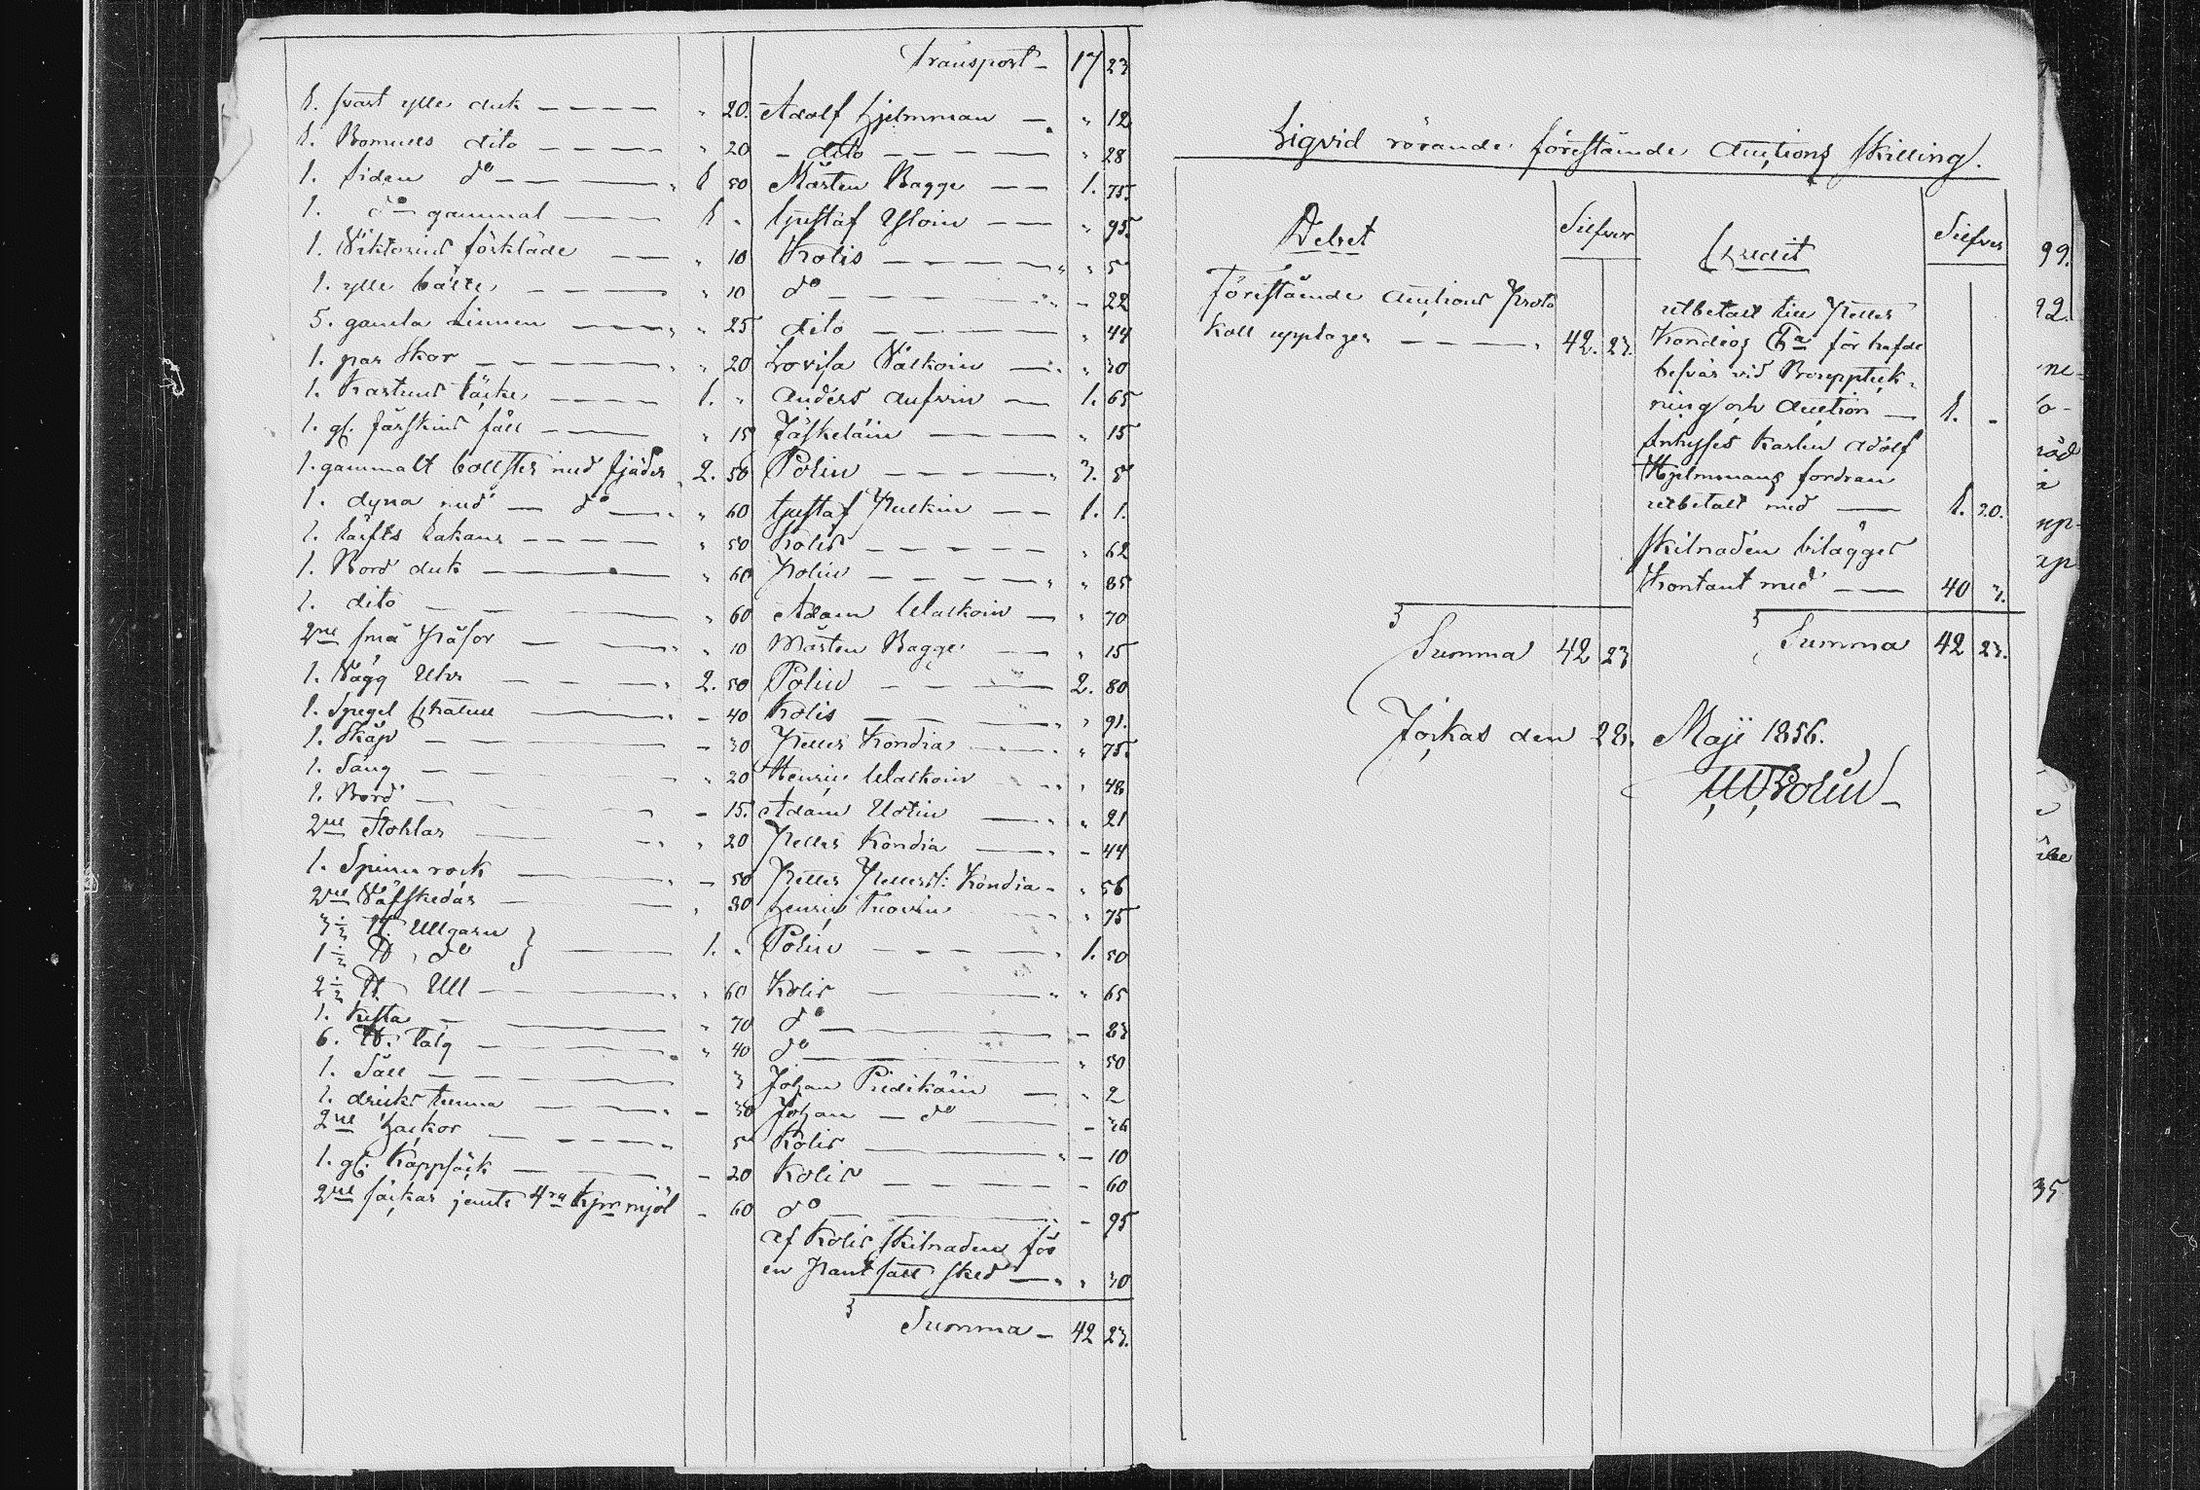 Transport - 17 23
1. svart ylle duk - - - - " 20. Adolf Hjelmman - " 12
1. Bomulls dito - - - - " 20 - dito - - - - " 28
1. siden do - - - " 1 50 Mårten Bagge - - 1. 75.
1. do gammal - 1 " Gustaf Yloin - - " 95.
1. Viktorins förkläde - - " 10 Kolis - - - - " " 5
1. ylle bälte - - - - " 10 do - - - - - 22
5. gamla Linnen - - - " " 25 dito - - - - " 44
1. par skor - - - - " " 20 Lovisa Valkoin - " " 30
1. Kartuns täcke - - - - 1. " Anders Aufvin - 1. 65
1. gl. fårskins fäll - - - " 15 Jäskeläin - - - " 15
1. gammalt bollster med fjäder " 2. 50 Polin - - - - " 3. 5
1. dyna med - do - - " " 60 Gustaf Pulkin - - 1. 1.
1. Lärfts Lakans - - - - " 50 Kolis - - - - - " 62
1. Bord duk - " 60 Polin - - - - " " 85
1. dito - " 60 Adam Walkoin - " 70
2ne små påsor - " 10 Mårten Bagge - - " 15
1. Vägg Uhr - - - " 2. 50 Polin - - - 2. 80
1. Spegel - " - 40 Kolis - - - " " 91.
1. Skåp - - 30 Petter Kondia - " 75.
1. Säng - " 20 Henric Walkoin - " 48
1. Bord - - 15. Adam Utin - " " 21
2ne Stohlar - " " 20 Petter Kondia - " - 44
1. Spinn rock - " - 50 Petter Petterss: Kondia - " 56
2ne Väfskedar - " 30 Henric - " 75
3 ½ ℔. Ullgarn
1 ½ ℔. do } - 1. " Polin - - - " 1. 50
2 ½ ℔ Ull - " " 60 Kolis - " " 65
1. Kista - " 70 do - - 83
6. ℔. Talg - " " 40 do - " 50
1. Såll - - - - 3 Johan Piedikäin - " 2
1. dricks tunna - - - " - 30 Johan - do - - 36
2ne Hackor - - - - - " 5 Kolis - " - 10
1. gl. Kappsäck - - 20 Kolis - - 60
2ne säckar jemte 4ra Kpr mjöl - 60 do - - 95
af Kolis skilnaden för
en pantsatt sked - " " 30
Summa - 42 23.
Liqvid rörande förestående Auctions Skilling.
Debet Silfver Kredit Silfver
Förestående Auctions Proto
koll upptager - - - - " 42. 23.
utbetalt till Petter
Kondias Ea för hafde
besvär vid Bouppteck-
ning och Auction - 1. -
Inhyses Karlen Adolf
Hjelmmans fordran
utbetalt med - 1. 20.
Skilnaden bilägges
Kontant med - - 40 3.
Summa 42 23 Summa 42 23.
Jockas den 28. Maji 1856.
Polin
99.
92.
35